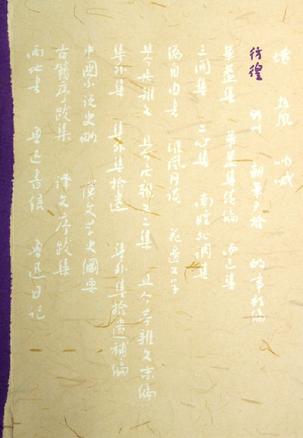 坟 热风 呐喊
彷徨
野草 朝花夕拾 故事新编
华盖集 华盖集续编 而已集
三闲集 二心集 南腔北调集
伪自由书 准风月谈 花边文学
且介亭杂文 且介亭杂文二集 且介亭杂文末编
集外集 集外集拾遗 集外集拾遗补编
中国小说史略 汉文学史纲要
古籍序跋集 译文序跋集
两地书 鲁迅书信 鲁迅日记